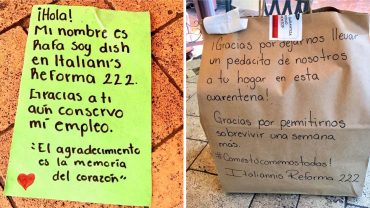 ¡Hola!
Mi nombre es
Rafa Soy dish
en Italiani's
Reforma 222.
Gracias a ti
aún conservo
mi empleo.
"El agradecimiento
es la memoria
del corazón"
¡Gracias por dejarnos llevar
un pedacito de nosotros
a tu hogar en esta
cuarentena!
Gracias por permitirnos
sobrevivir una semana
más.
#Comestúcomemostodos!
Italiannis Reforma 222